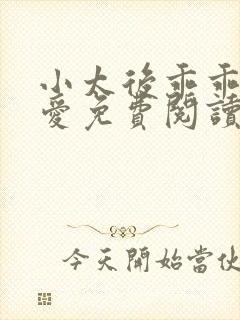 小太後乖乖
愛免費閱讀
今天開始當伙